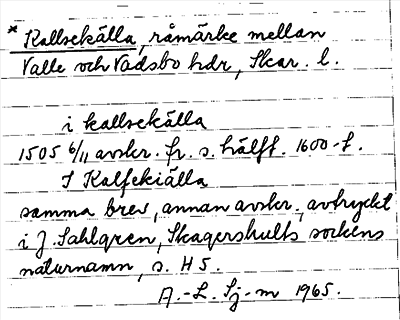 * Kallsekälla, råmärke mellan
Valle och Vadsbo hdr, Skar. l.
i kallsekälla
1505 6/11 avskr. fr. s. hälft. 1600-t.
I Kalfekiälla
samma brev, annan avskr., avtryckt
i J. Sahlgren, Skagershults sockens
naturnamn, s. H5.
A.-L. Sj-m 1965.